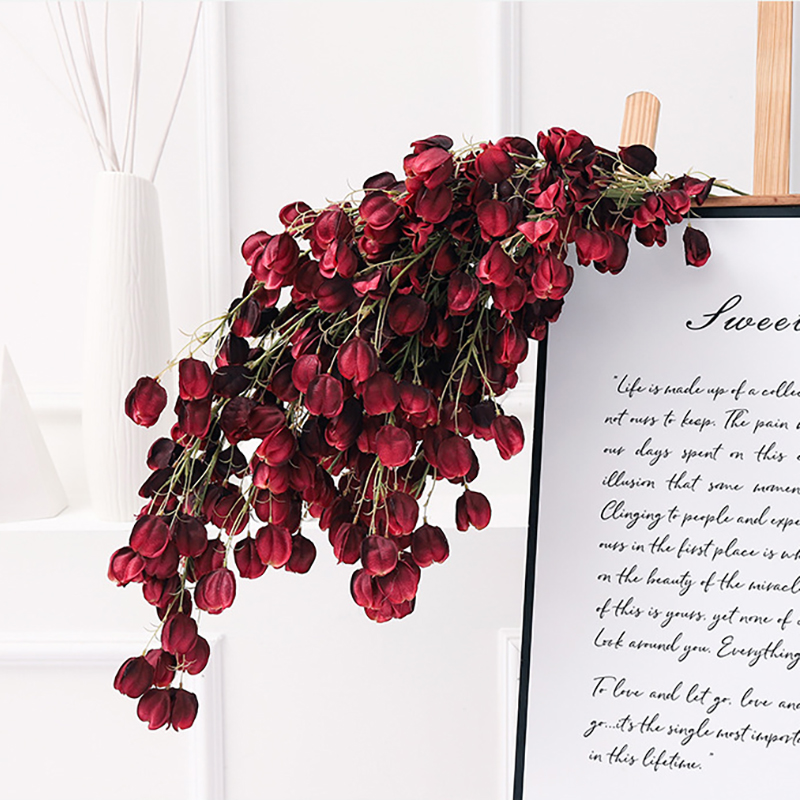 Sweet
"Life is made up of a colle
not ours to keep. The pain
our days spent on this
illusion that some momen
Clinging to people and expe
ours in the first place is wh
on the beauty of the miracl
of this is yours, yet none of
Look around you. Everything
To love and let go, love and
go...it's the single most importa
in this lifetime."